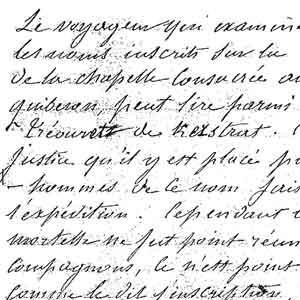 Le voyageur qui examin
les noms inscrits sur la
de la chapelle consacrée au
quiberon peut lire parmi
Trécourt de Kerstrat.
Justice qu'il y est placé p
hommes de ce nom fais
l'expédition. Cependant
mortelle ne fut point réun
compagnons, ce n'est point
comme le dit l'inscription